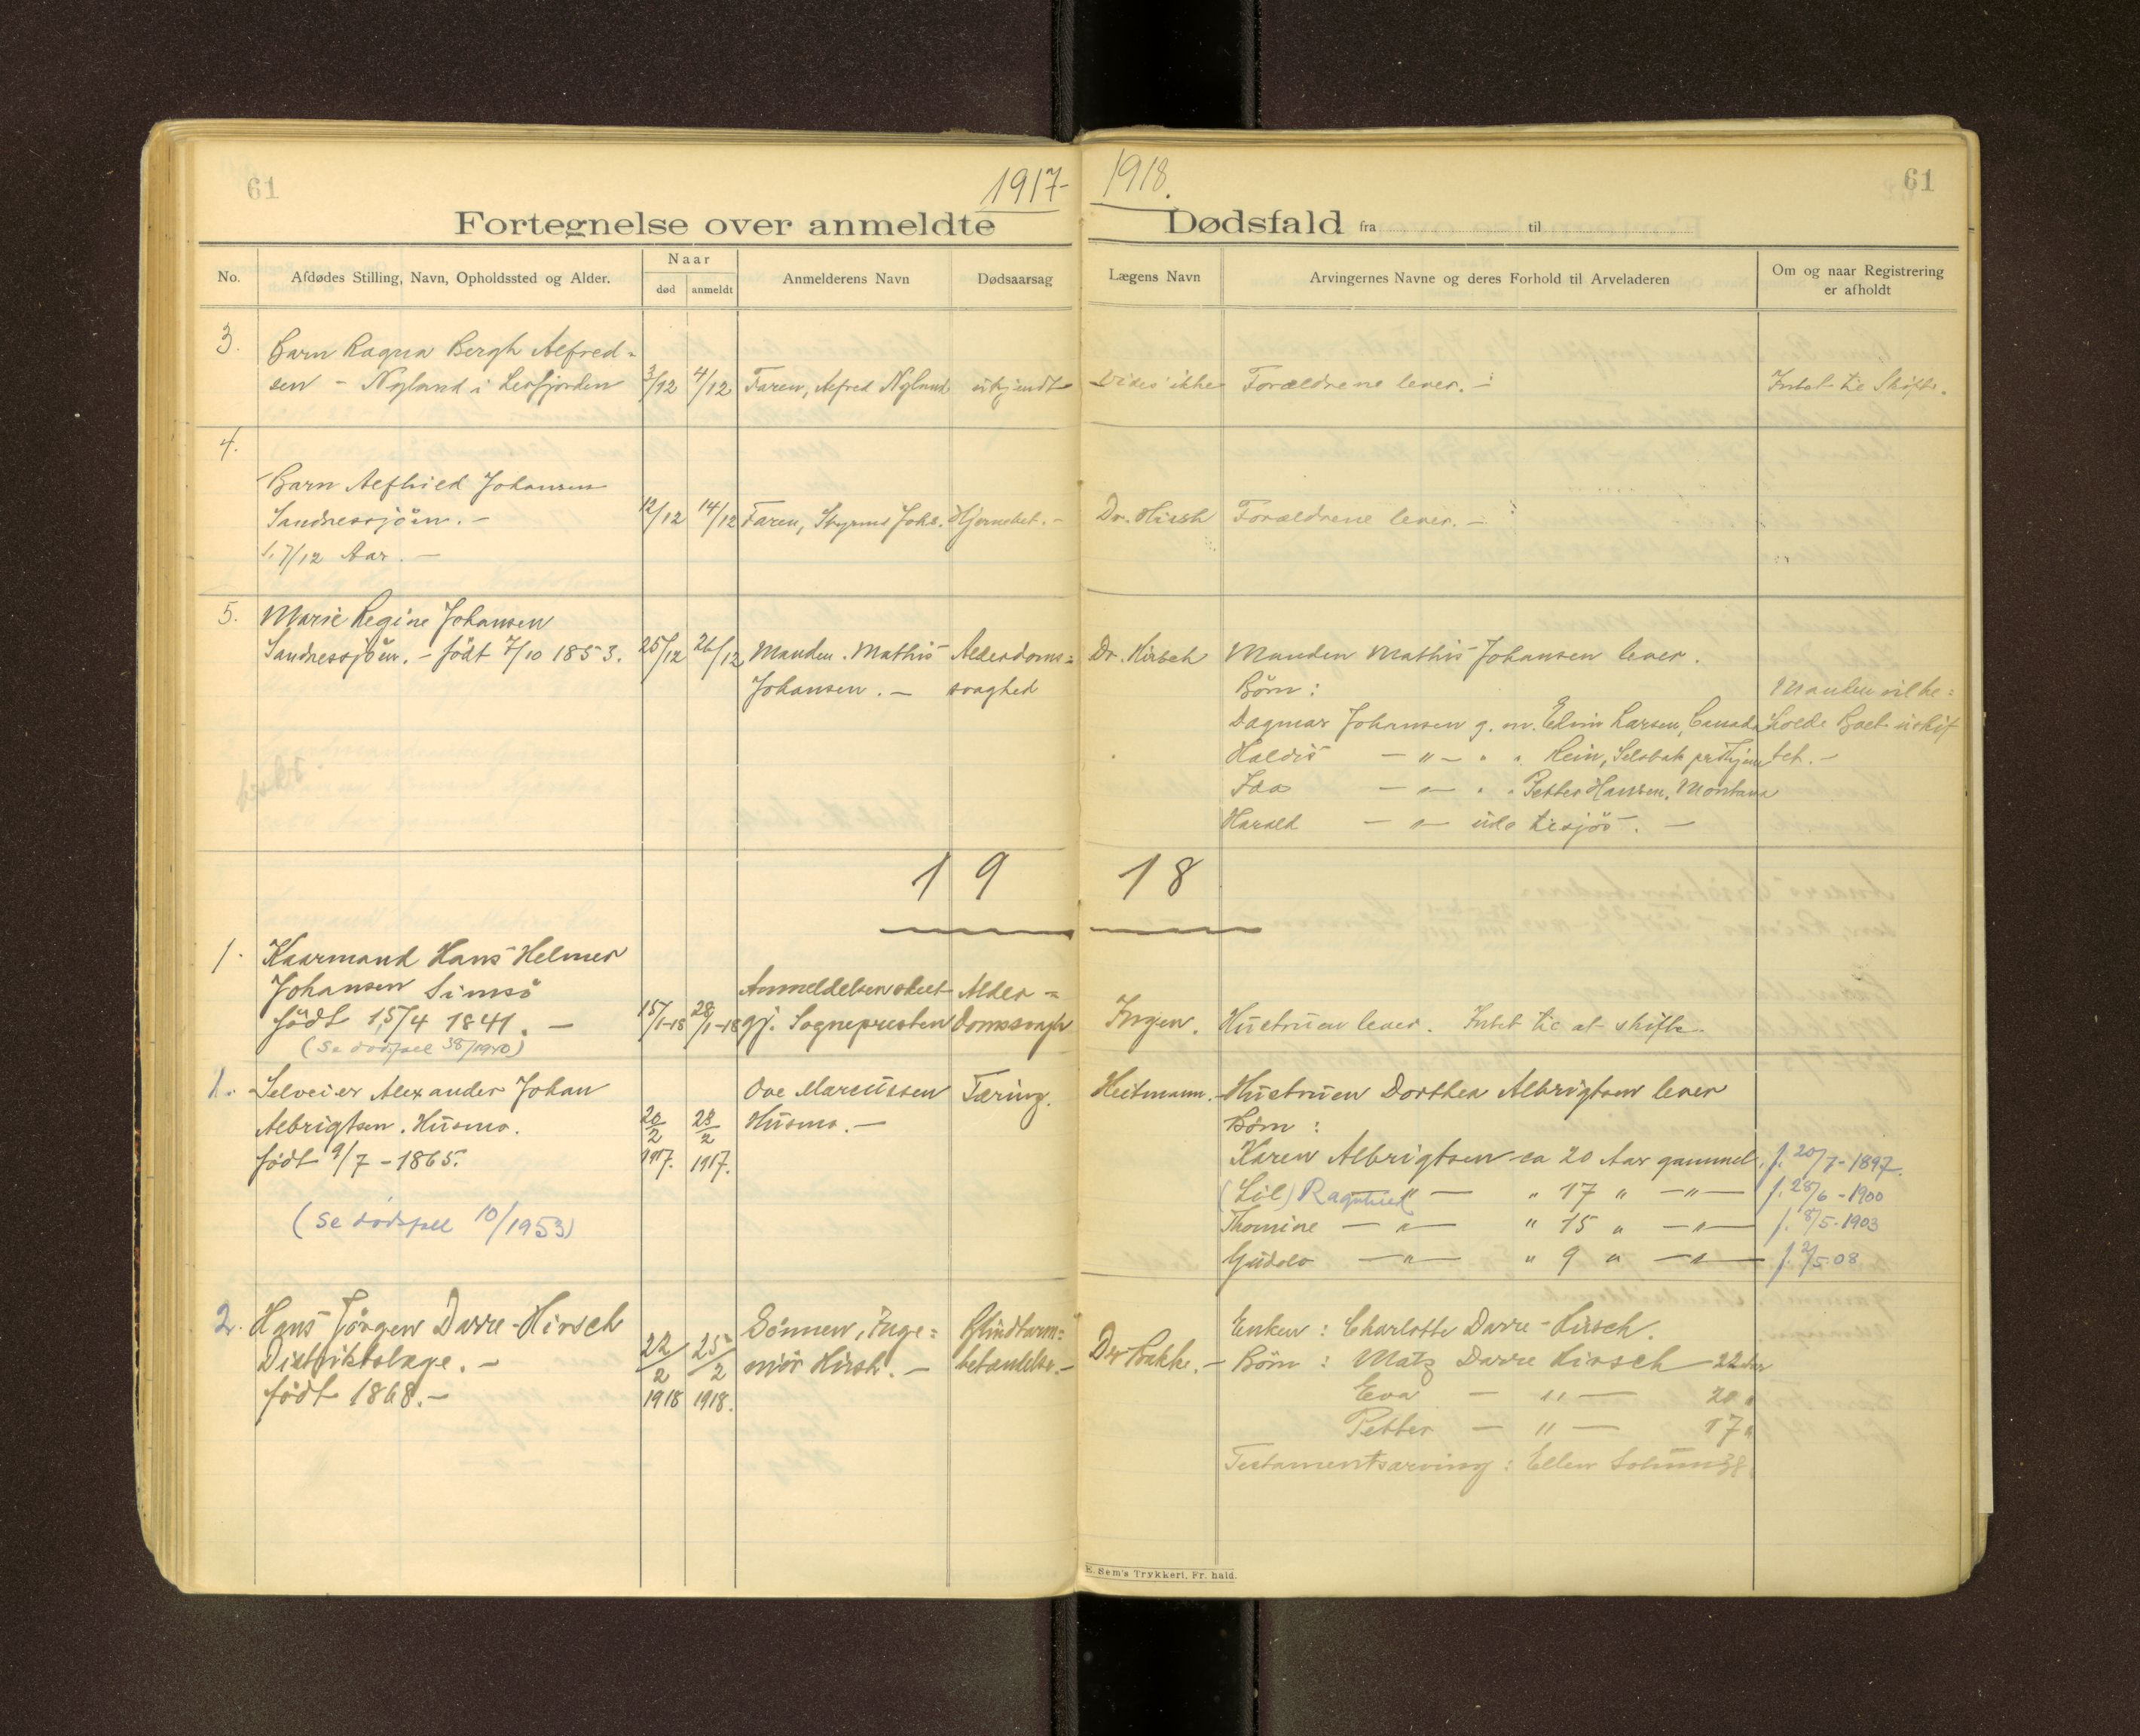 61
1917-
1918.
61
Fortegnelse over anmeldte
Dødsfald fra til
No.
Afdødes Stilling, Navn, Opholdssted og Alder.
Naar
død
anmeldt
Anmelderens Navn
Dødsaarsag
Lægens Navn
Arvingernes Navne og deres Forhold til Arveladeren
Om og naar Registrering
er afholdt
3.
Barn Ragna Bergh Alfred=
sen - Nyland i Leirfjorden
3/12
4/12
Faren, Alfred Nyland
ukjendt
Vides ikke
Forældrene lever. -
Intet til Skifte.
4.
Barn Alfhild Johansen
Sandnessjöen. -
1. 7/12 Aar. -
12/12
14/12
Faren, Styrmd Johs.
Hjernebet. -
Dr. Hirsch
Forældrene lever. -
5.
Marie Regine Johansen
Sandnessjöen. - födt 7/10 1853.
25/12
26/12
Manden. Mathis
Johansen. -
Alderdoms=
svaghed
Dr. Hirsch
Manden Mathis Johansen lever.
Börn:
Dagmar Johansen g. m. Elvin Larsen, Canada
Haldis - " - " " Rein, Selsbak pr Thjem
Ida - " - " " Petter Hansen, Montana
Harald - " - ude tilsjös. -
Manden vil be=
holde Boet uskif
tet. -
19
18
1.
Kaarmand Hans Helmer
Johansen Simsö
födt 15/4 1841. -
(Se dødsfall 38/1940)
15/1-18
28/1-18
Anmeldelsen skeet
gj. Sognepresten
Alder=
domssvagh
Ingen.
Hustruen lever. Intet til at skifte.
1.
Selveier Alexander Johan
Albrigtsen. Husmo.
födt 9/7 - 1865.
(Se dødsfall 10/1953)
20/2
1917.
23/2
1917.
Ove Marcussen
Husmo. -
Tæring.
Heitmann.
Hustruen Dorthea Albrigtsen lever
Börn:
Karen Albrigtsen ca 20 Aar gammel.
f. 20/7-1897.
(Lil) Ragnhild - " - " 17 " - " -
f. 28/6-1900
Thomine - " - " 15 " - " -
f. 8/5-1903
Gudolo - " - " 9 " - " -
f. 2/5-08
2.
Hans Jörgen Darre-Hirsch
Distriktslæge. -
födt 1868. -
22/2
1918
25/2
1918.
Sönnen, Inge=
niör Hirsch. -
Blindtarm=
betændelse. -
Dr. Bakke. -
Enken: Charlotte Darre-Hirsch.
Börn: Matz Darre Hirsch 22 Aar
Eva - " - 20 "
Petter - " - 17 "
Testamentsarving: Ellen
E. Sem's Trykkeri, Fr. hald.